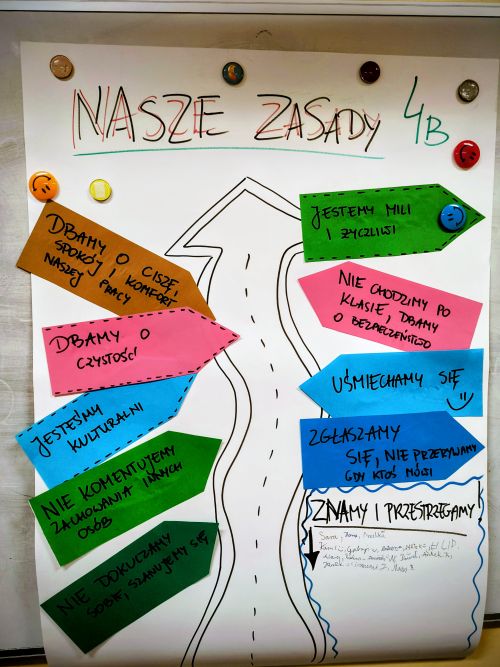 NASZE ZASADY 4B
DBAMY O CISZĘ,
SPOKÓJ I KOMFORT
NASZEJ PRACY
DBAMY O
CZYSTOŚCI
JESTEŚMY
KULTURALNI
NIE KOMENTUJEMY
ZACHOWANIA INNYCH
OSÓB
NIE DOKUCZAMY
SOBIE, SZANUJEMY SIĘ
JESTEMY MILI
I ŻYCZLIWI
NIE CHODZIMY PO
KLASIE, DBAMY
O BEZPECZEŃSTWO
UŚMIECHAMY SIĘ
ZGŁASZAMY
SIĘ, NIE PRZERYWAMY
GDY KTOŚ MÓWI
ZNAMY I PRZESTRZEGAMY